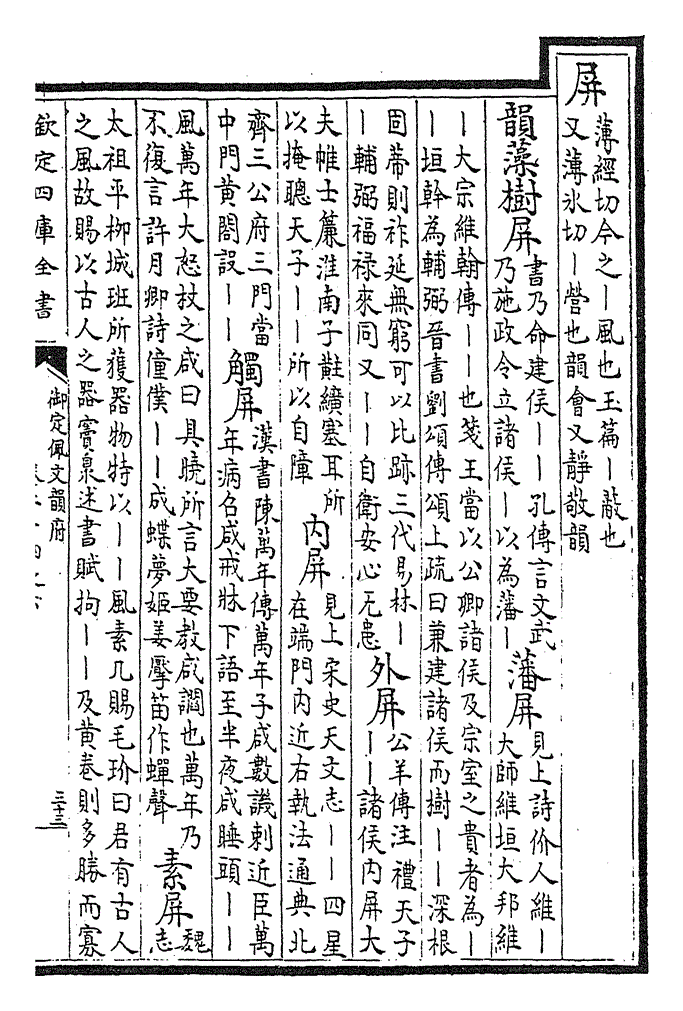 屏
薄經切今之｜風也玉篇｜蔽也
又薄氷切｜營也韻會又靜敬韻
韻藻樹屏
書乃命建侯｜｜孔傳言文武
乃施政令立諸侯｜以為藩｜
藩屏
見上詩价人維｜
大師維垣大邦維
｜大宗維翰傳｜｜也箋王當以公卿諸侯及宗室之貴者為｜
｜垣幹為輔弼晉書劉頌傳頌上疏曰兼建諸侯而樹｜｜深根
固蒂則祚延無窮可以比跡三代易林｜
｜輔弼福禄來同又｜｜自衛安心无患
外屏
公羊傳注禮天子
｜｜諸侯内屏大
夫帷士簾淮南子黈纊塞耳所
以掩聰天子｜｜所以自障
内屏
見上宋史天文志｜｜四星
在端門内近右執法通典北
齊三公府三門當
中門黄閤設｜｜
觸屏
漢書陳萬年傳萬年子咸數譏刺近臣萬
年病召咸戒牀下語至半夜咸睡頭｜｜
風萬年大怒杖之咸曰具曉所言大要教咸讇也萬年乃
不復言許月卿詩僮僕｜｜成蝶夢姬姜擪笛作蟬聲
素屏
魏
志
太祖平柳城班所獲器物特以｜｜風素几賜毛玠曰君有古人
之風故賜以古人之器竇泉述書賦拘｜｜及黄卷則多勝而寡
欽定四庫全書
御定佩文韻府
三十三